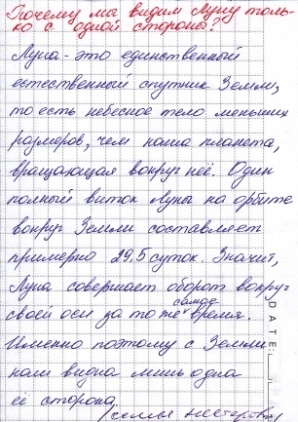 Почему мы видим Луну толь-
ко с одной стороны?
Луна - это единственный
естественный спутник Земли,
то есть небесное тело меньших
размеров, чем наша планета,
вращающая вокруг неё. Один
полный виток Луны на орбите
вокруг Земли составляет
примерно 29,5 суток. Значит,
Луна совершает оборот вокруг
самое
своей оси за то же время.
Именно поэтому с Земли
нам видна лишь одна
её сторона.
DATE